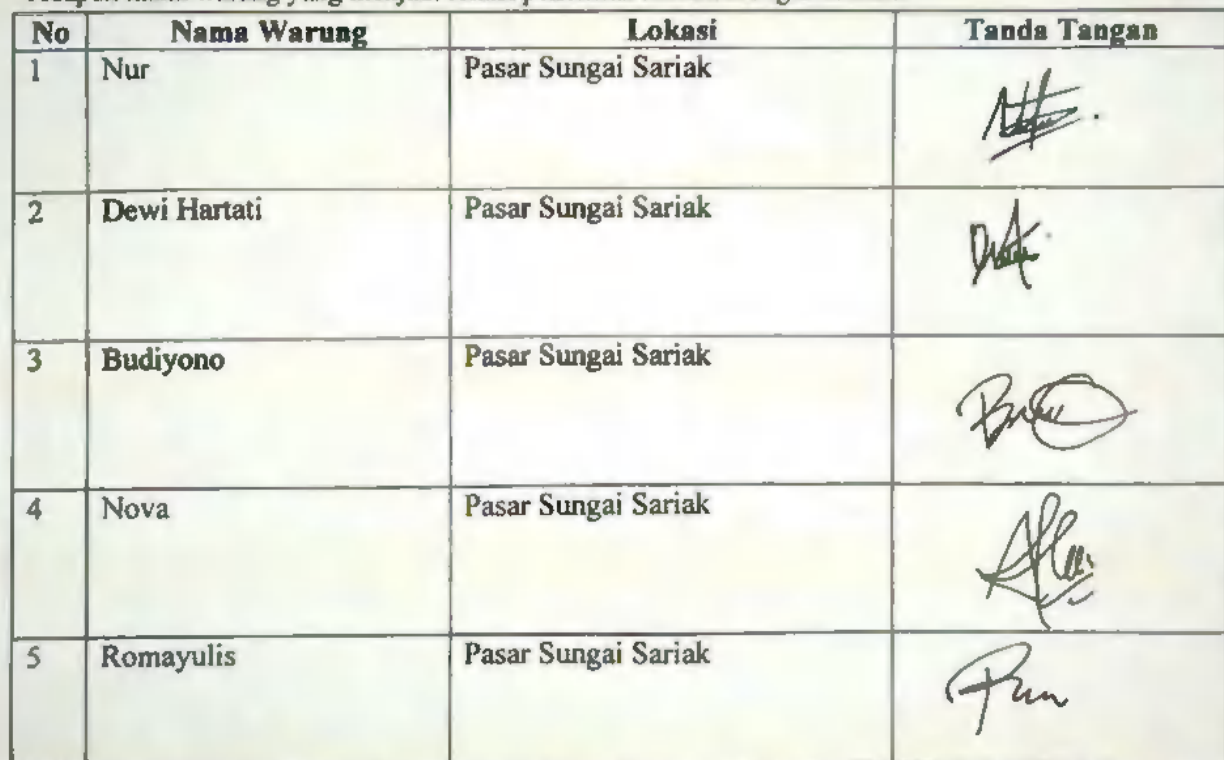 No Nama Warung Lokasi Tanda Tangan
1 Nur Pasar Sungai Sariak
2 Dewi Hartati Pasar Sungai Sariak
3 Budiyono Pasar Sungai Sariak
4 Nova Pasar Sungai Sariak
5 Romayulis Pasar Sungai Sariak